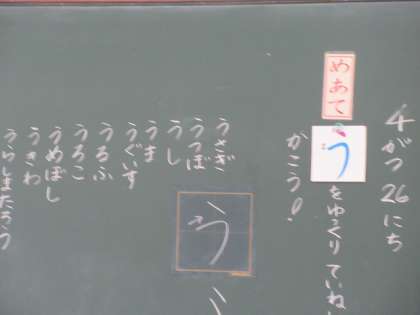 4がつ26にち
めあて
うをゆっくりていねい
がこう!
うさぎ
うつぼ
うし
うま
うぐいす
うるふ
うろこ
うめぼし
うきわ
うらしまたろう
う